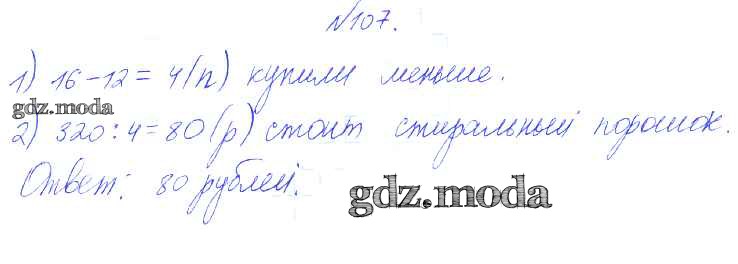 №107.
1) 16-12=4(п) купили меньше.
gdz.moda
2) 320:4=80(р) стоит стиральный порошок.
Ответ: 80 рублей.
gdz.moda